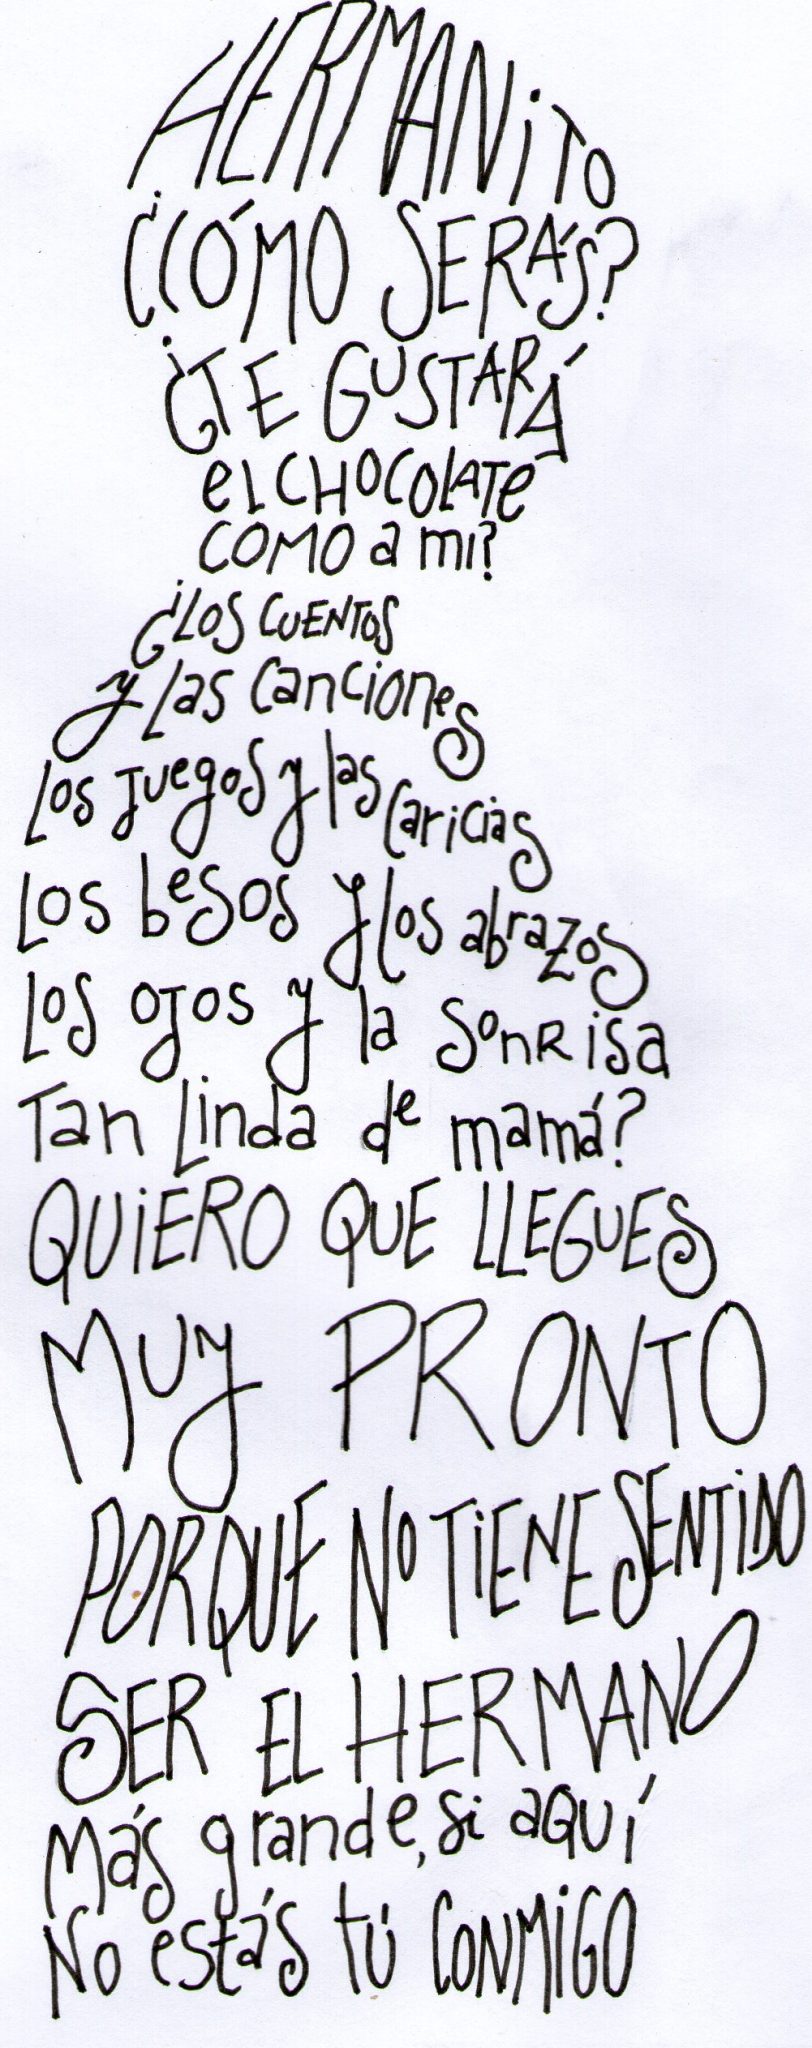 HERMANiTO
¿CÓMO SERÁS?
¿TE GUSTARÁ
el CHOCOLATE
COMO a mi?
¿LOS CUENTOS
y las canciones
Los juegos y las caricias
Los besos y los abrazos
Los ojos y la sonRisa
Tan Linda de mamá?
QUiERO QUE LLEGUES
MUy PRONTO
PORQUE No TiENE SENTiDO
SER EL HERMANO
Más grande, si aquí
No estás tú CONMiGO